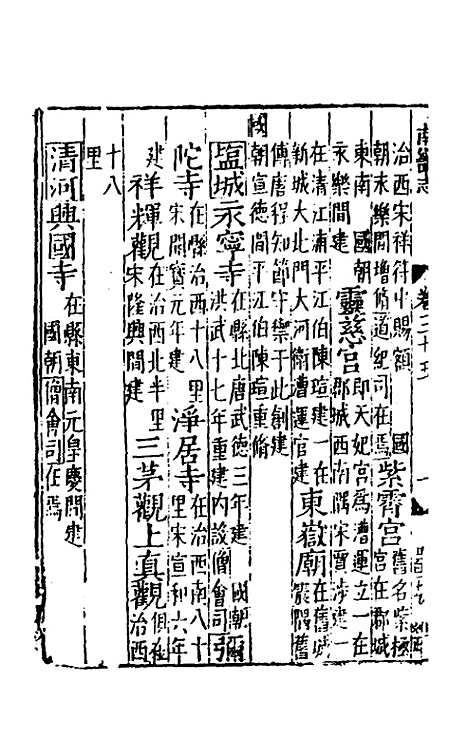 南畿志
卷三十五
一
治西宋祥符中賜額 國
朝永樂間增脩道紀司在焉
紫霄宮
舊名紫極
宮在郡城
東南 國朝
永樂間建
靈慈宮
即天妃宮為漕運立一在
郡城西南隅宋賈涉建一
在清江浦平江伯陳瑄建一在
新城大北門大河衛漕運官建
東嶽廟
在舊城
隅舊
傳唐程知節守禦于此創建 國
朝宣德間平江伯陳瑄重脩
塩城永寧寺
在縣北唐武德三年建 國朝
洪武十七年重建內設僧會司
彌
陀寺
在縣治西十八里
宋開寶元年建
淨居寺
在治西南八十
里宋宣和六年
建
觀
在治西北半里
宋隆興間建
三茅觀上真觀
俱在
治西
十八
里
清河興國寺
在縣東南元皇慶間建
國朝僧會司在焉